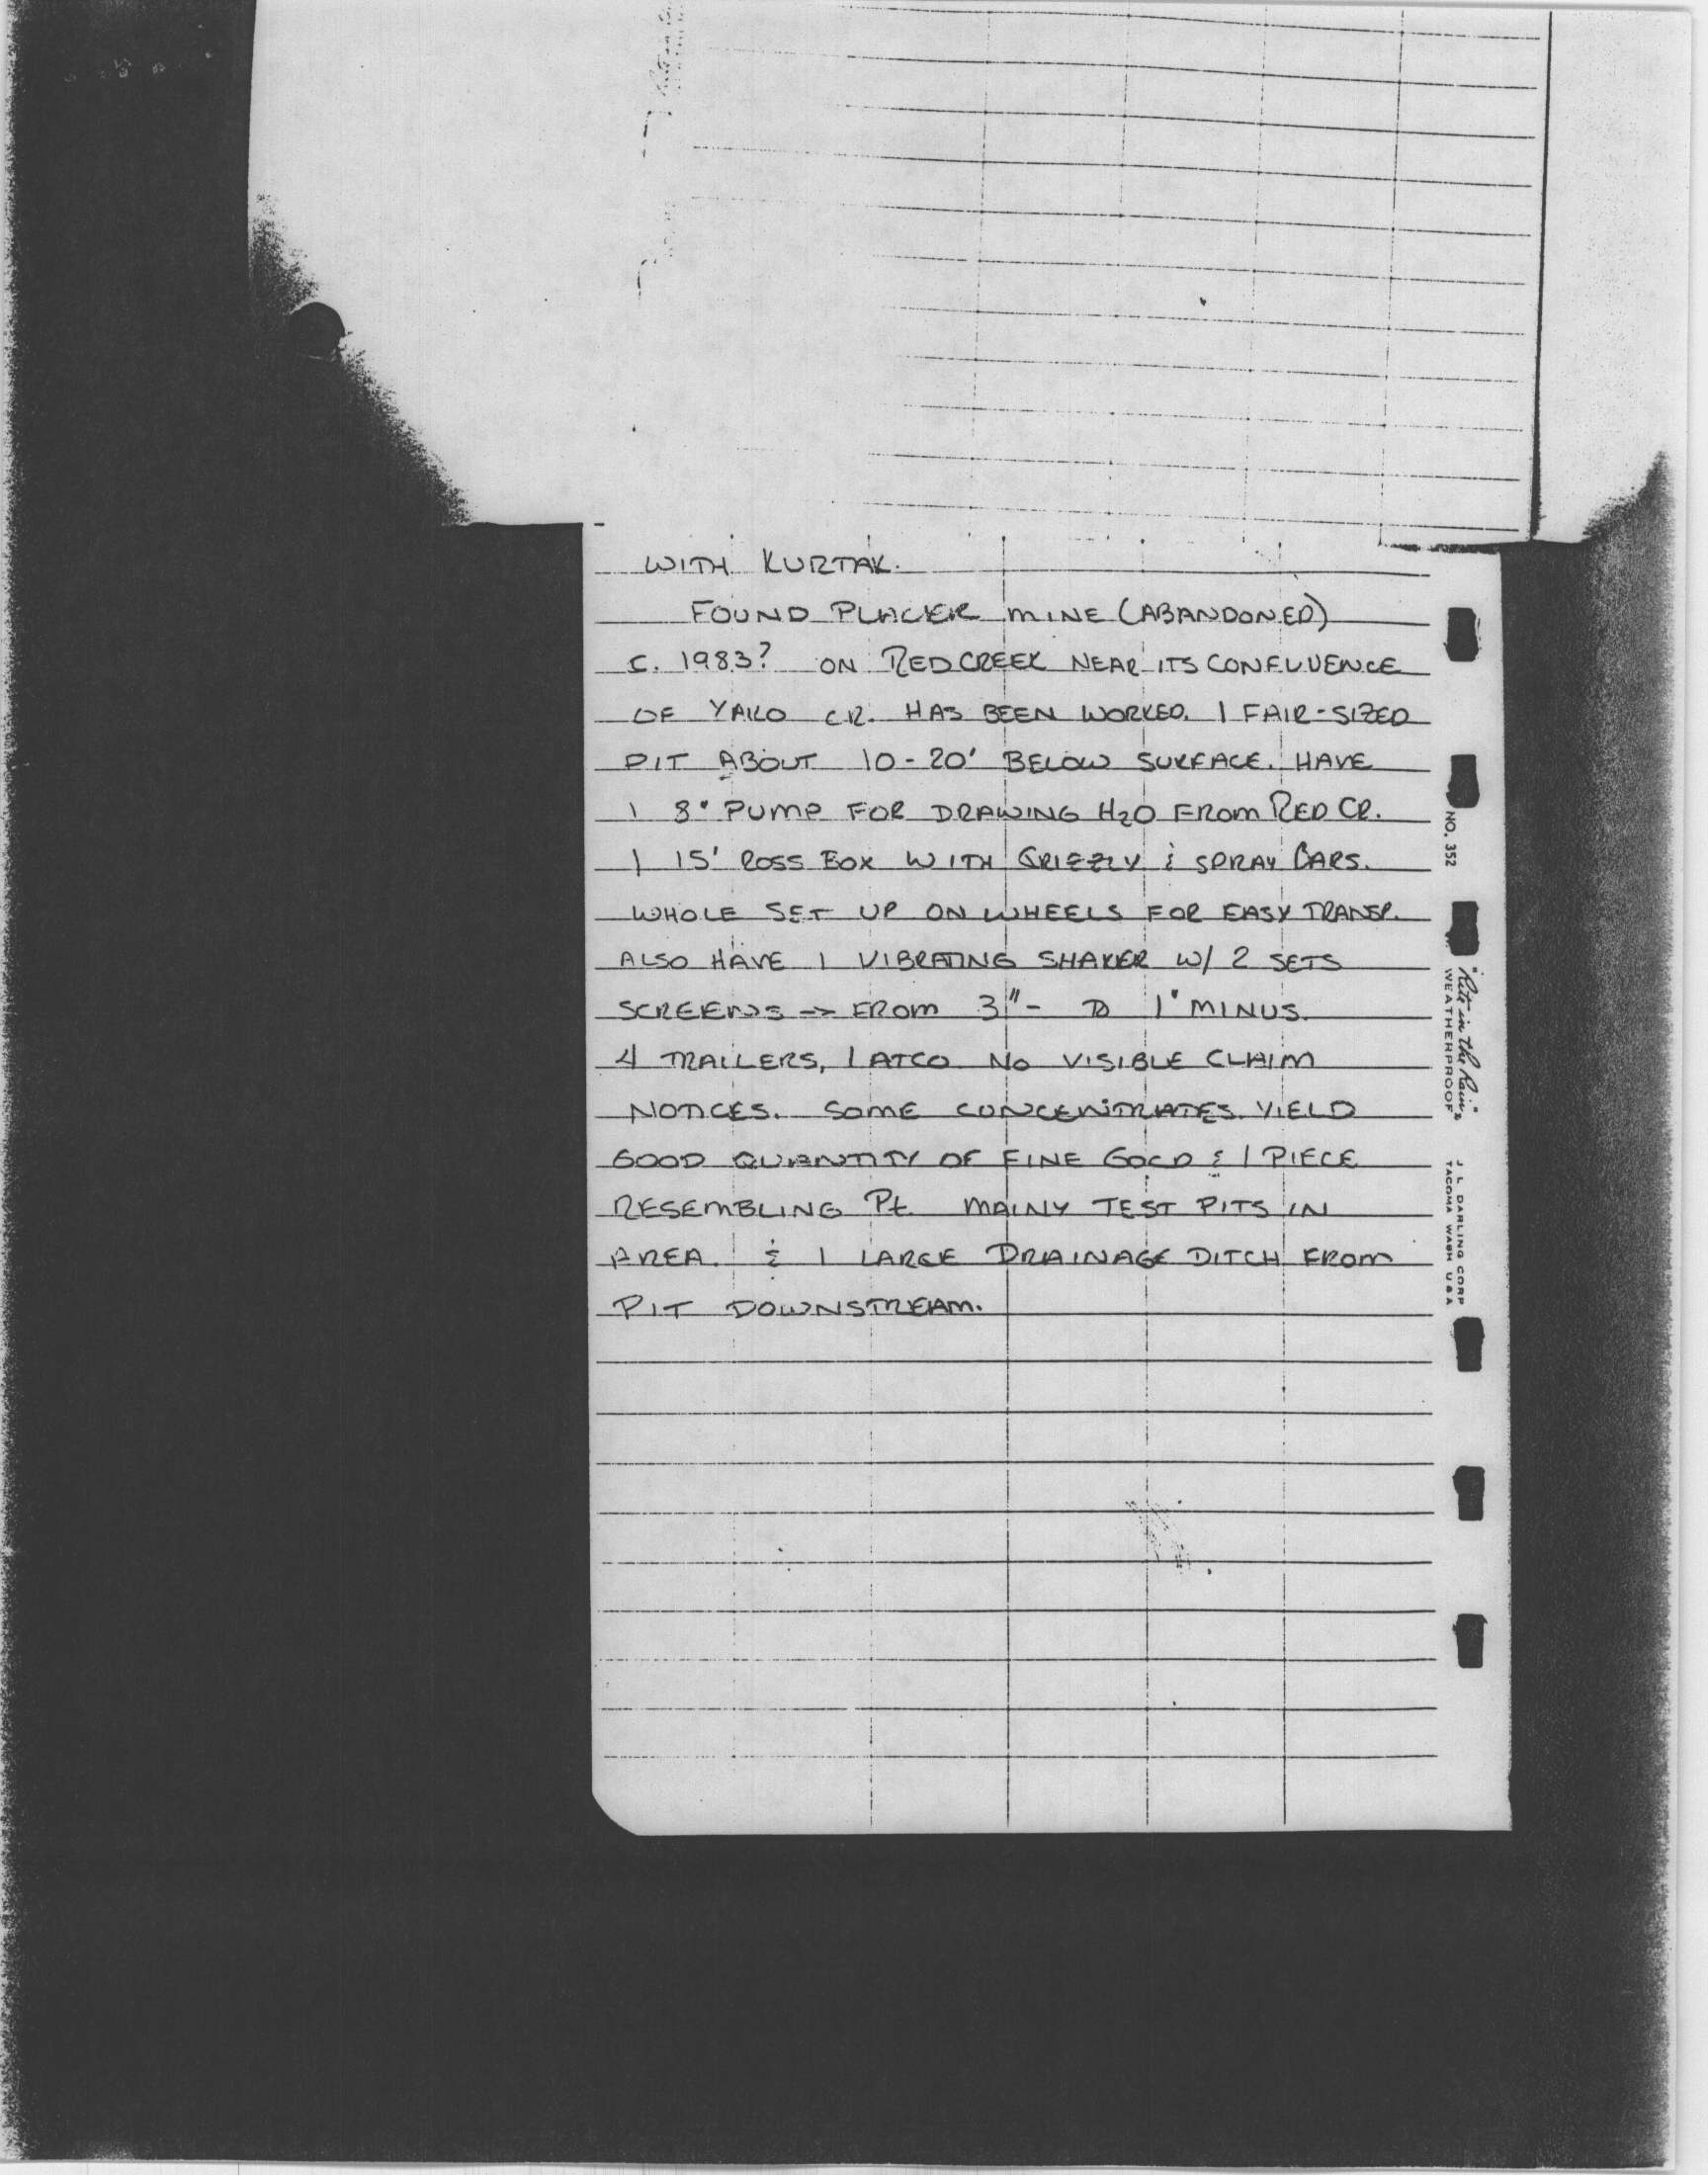 WITH KURTAK.
FOUND PLACER MINE (ABANDONED)
c. 1983? ON RED CREEK NEAR ITS CONFLUENCE
OF YAKO CR. HAS BEEN WORKED. 1 FAIR-SIZED
PIT ABOUT 10-20' BELOW SURFACE. HAVE
1 8" PUMP FOR DRAWING H2O FROM RED CR.
1 15' ROSS BOX WITH GRIZZLY & SPRAY BARS.
WHOLE SET UP ON WHEELS FOR EASY TRANSP.
ALSO HAVE 1 VIBRATING SHAKER W/ 2 SETS
SCREENS -> FROM 3"- TO 1" MINUS.
4 TRAILERS, 1 ATCO NO VISIBLE CLAIM
NOTICES. SOME CONCENTRATES YIELD
GOOD QUANTITY OF FINE GOLD & 1 PIECE
RESEMBLING Pt. MAINY TEST PITS IN
AREA. & 1 LARGE DRAINAGE DITCH FROM
PIT DOWNSTREAM.
NO. 352
"Rite in the Rain"
WEATHERPROOF
J L DARLING CORP
TACOMA WASH USA